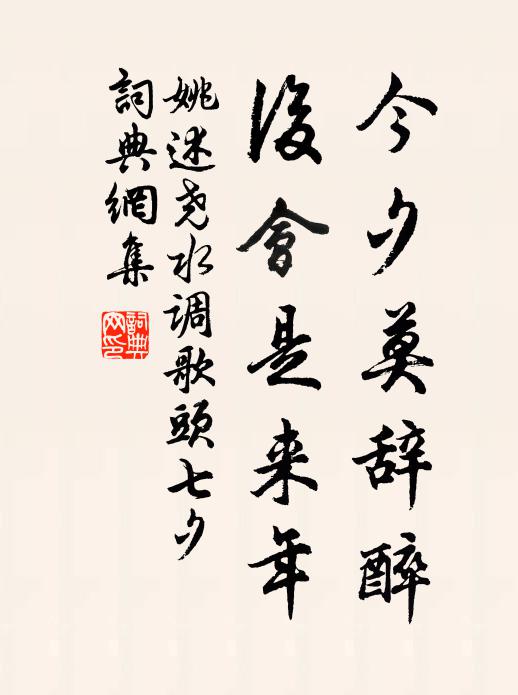 今夕莫辞醉
後會是来年
姚述尧水调歌頭七夕
詞典網集
詞典网印